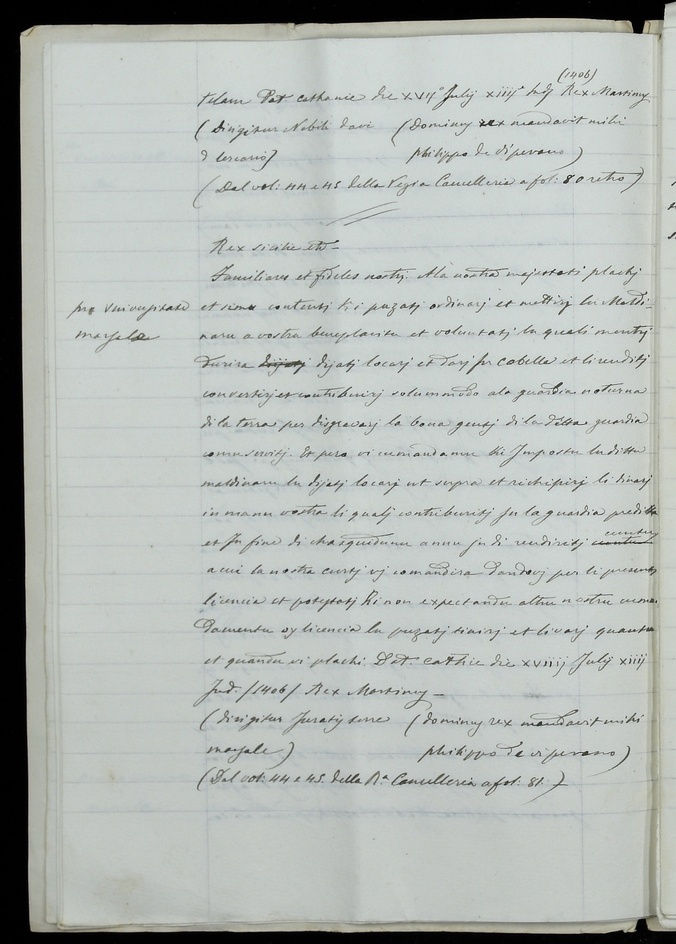 (1406)
telam Dat. cathanie die XVIJ° July XIIIJ° Indj Rex Martinus
(Dirigitur Nobili davi (Dominus rex mandavit mihi
d lercario) philippo de viperano)
(Dal vol: 44 e 45 della Regia Cancelleria a fol: 80 retro)
Rex sicilie etc
Familiares et fideles nostrj. Ala nostra majestati plachj
pro universitate et simu contenti ki puzatj ordinarj et mettirj lu Maldi-
marsale naru a vostra beneplacitu et voluntatj lu quali mentrj
durira dijatj locarj et darj in cabella et li renditj
convertirj et contribuirj solummodo ala guardia noturna
di la terra per disgravarj la bona gentj di la ditta guardia
comu serviti. Et pero vi cumandamu ki Impostu lu dittu
maldinaru lu dijatj locarj ut supra et richipirj li dinarj
in manu vostra li qualj contribuiritj In la guardia preditta
et In fine di chasquidunu annu jn di rendiritj cuntu
a cui la nostra curtj vj comandira Dandovj per li presentj
licencia et potestatj ki non expectandu altru nostru cuman
damentu oy licencia lu puzatj tinirj et livarj quantu
et quandu vi plachi Dat. cathie die XVIIIJ July XIIIJ
Ind. (1406) Rex Martinus
(dirigitur Juratis terre (dominus rex mandavit mihi
marsale) philippo de viperano)
(Dal vol: 44 e 45. della Ra Cancelleria a fol: 81.)